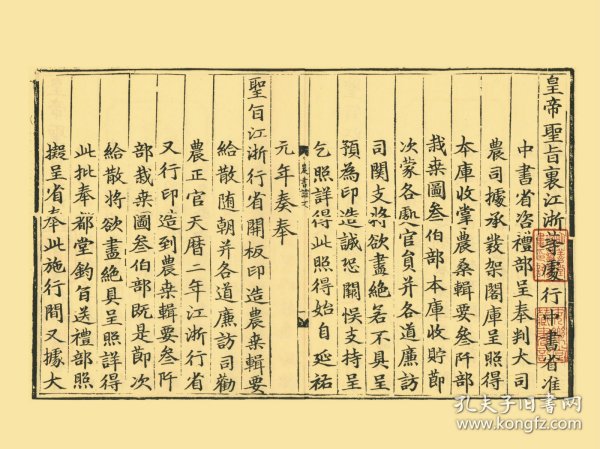 皇帝聖旨裏江浙等處行中書省准
中書省咨禮部呈奉判大司
農司據承發架閣庫呈照得
本庫收掌農桑輯要叁阡部
栽桒圖叁伯部本庫收貯節
次蒙各處官員并各道廉訪
司関支將欲盡絶若不具呈
預為印造誠恐闕悮支持呈
乞照詳得此照得始自延祐
元年奏奉
聖旨江浙行省開板印造農桒輯要
給散随朝并各道廉訪司勸
農正官天曆二年江浙行省
又行印造到農桒輯要叁阡
部栽桒圖叁伯部既是節次
給散將欲盡絶具呈照詳得
此批奉都堂鈞旨送禮部照
擬呈省奉此施行間又據大
孔夫子旧书网